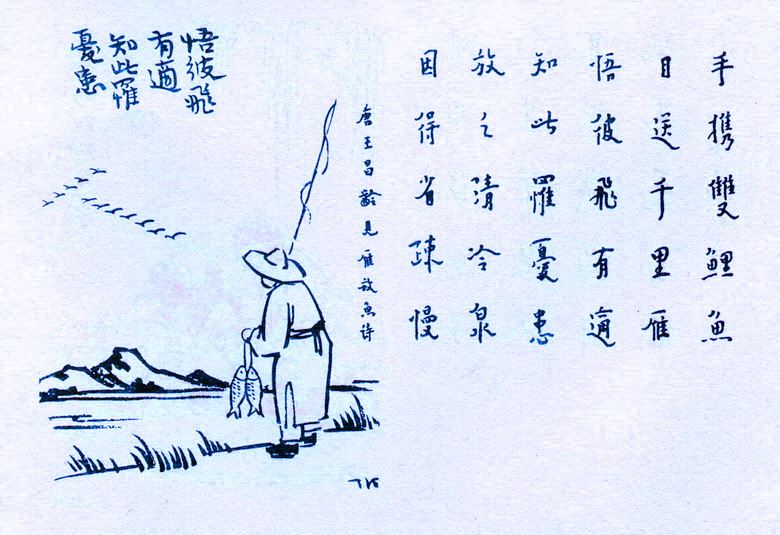 手攜雙鯉魚
目送千里雁
悟彼飛有適
知此罹憂患
放之清冷泉
因得省疎慢
唐王昌齡見雁放魚詩
悟彼飛
有適
知此罹
憂患
TK